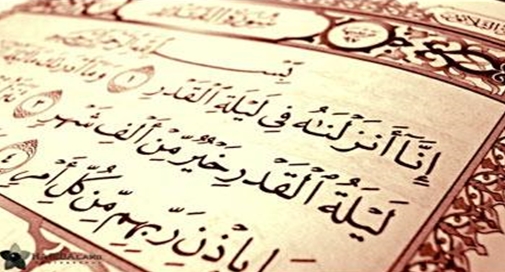 سُورَةُ القَدْرِ
بِسْمِ اللَّهِ الرَّحْمَٰنِ الرَّحِيمِ
إِنَّآ أَنزَلْنَٰهُ فِى لَيْلَةِ ٱلْقَدْرِ ١ وَمَآ أَدْرَىٰكَ
لَيْلَةُ ٱلْقَدْرِ خَيْرٌ مِّنْ أَلْفِ شَهْرٍ ٣
بِإِذْنِ رَبِّهِم مِّن كُلِّ أَمْرٍ ٤